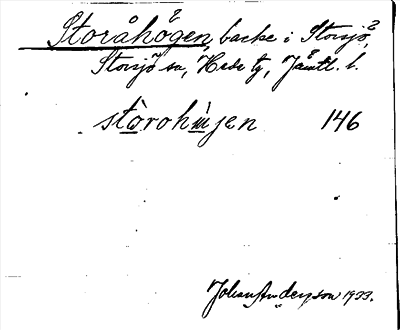 Storåhögen, backe i Storsjö,
Storsjö sn, Hede tg, Jämtl. l.
stòrohųjen 146
Johan Anderson 1933.